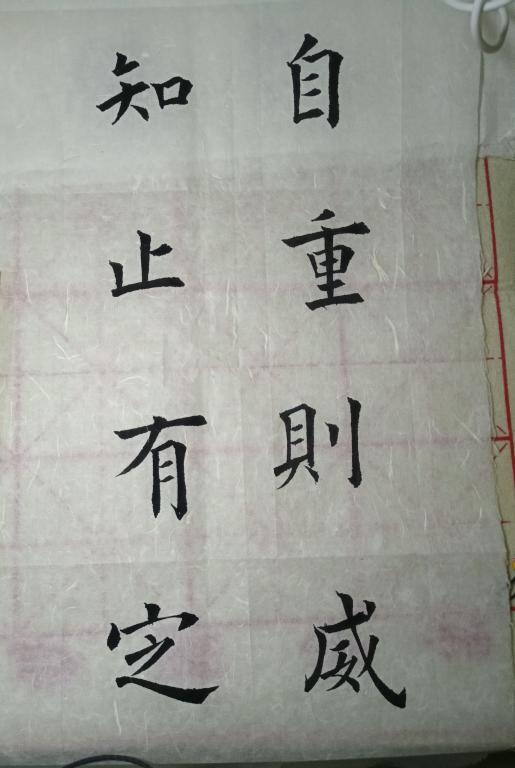 自重則威
知止有定